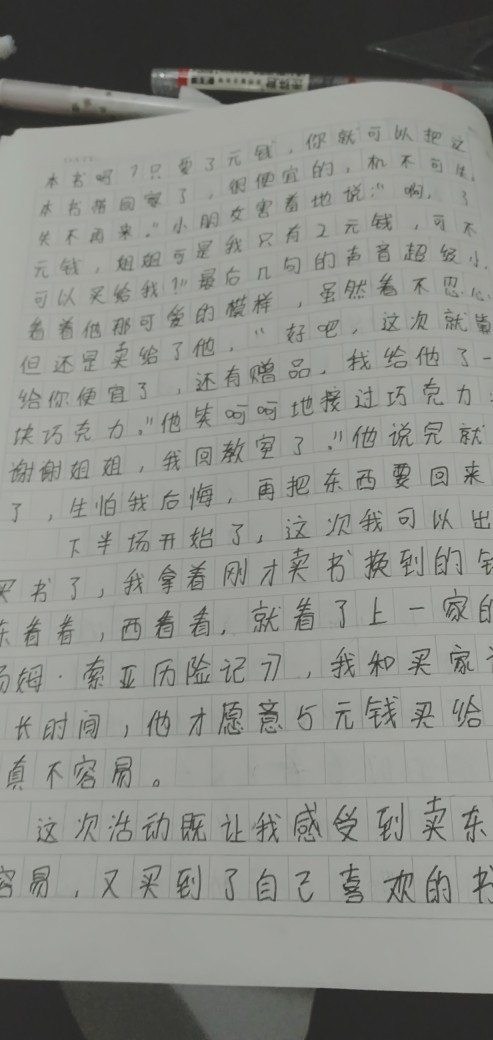 本书吗？只要3元钱，你就可以把这
本书带回家了，很便宜的，机不可失，
失不再来。”小朋友害羞地说：“啊，3
元钱，姐姐可是我只有2元钱，可不
可以买给我？”最后几句的声音超级小，
看着他那可爱的模样，虽然着不忍心
但还是卖给了他，“好吧，这次就算
给你便宜了，还有赠品，我给他了一
块巧克力。”他笑呵呵地接过巧克力
谢谢姐姐，我回教室了。”他说完就
了，生怕我后悔，再把东西要回来
下半场开始了，这次我可以出
买书了，我拿着刚才卖书换到的钱
东看看，西看看，就看了上一家的
汤姆·索亚历险记》，我和买家
长时间，他才愿意5元钱买给
真不容易。
这次活动既让我感受到卖东
容易，又买到了自己喜欢的书